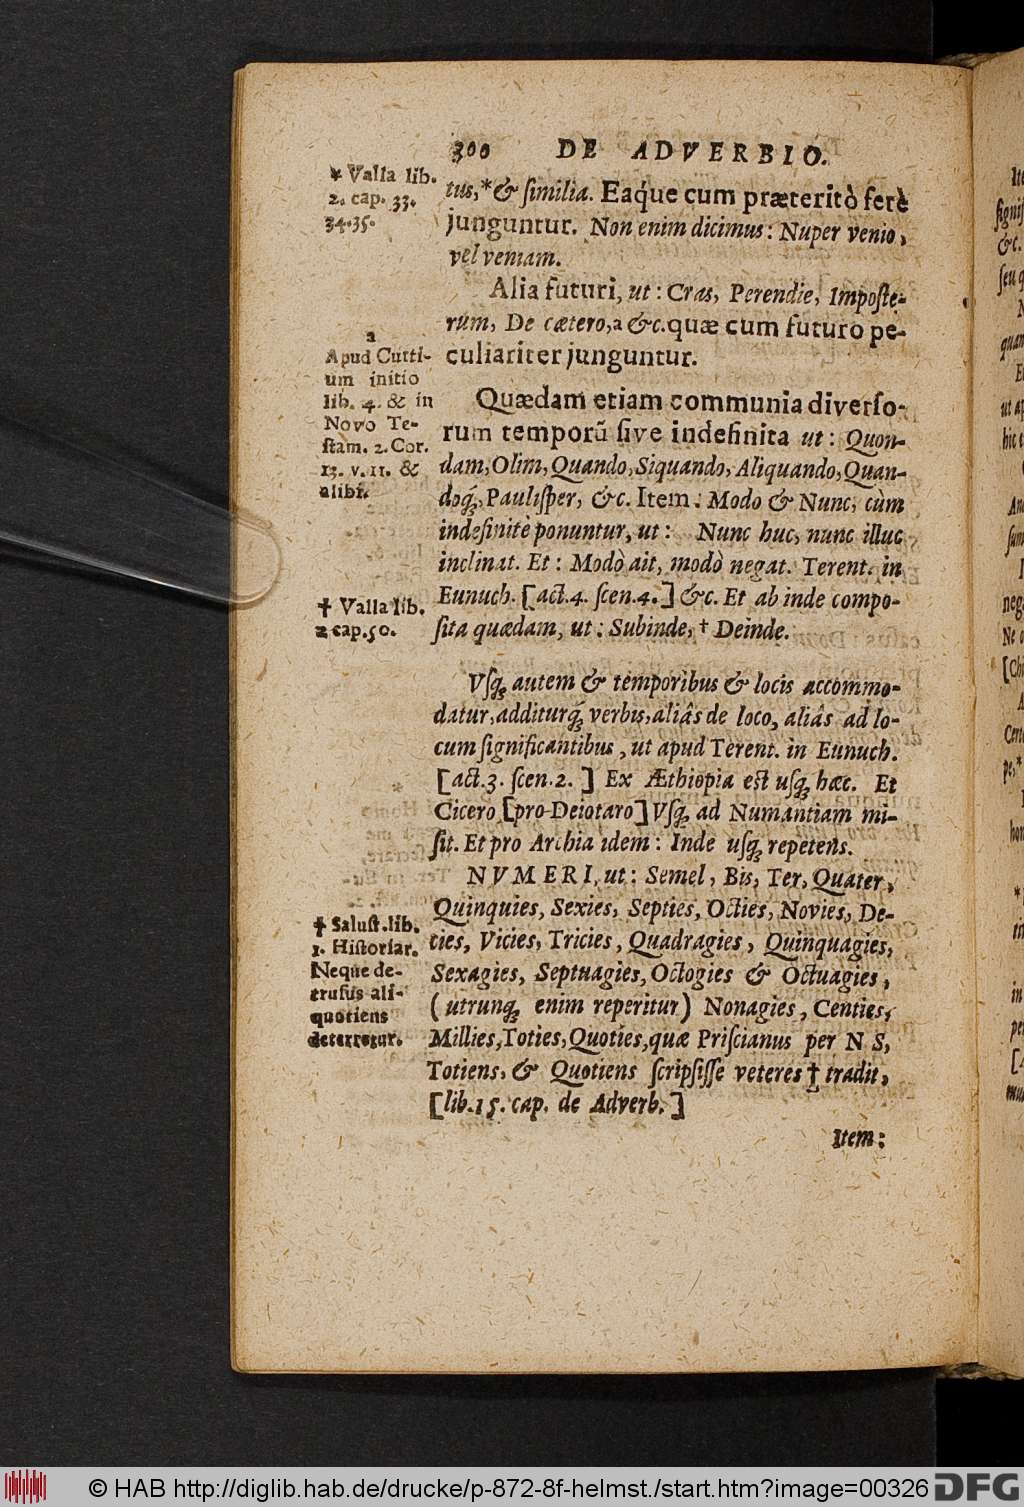 300 DE ADVERBIO.
* Valla lib.
2. cap. 33.
34.35.
tus,* & ſimilia. Eaque cum præteritò ferè
junguntur. Non enim dicimus: Nuper venio,
vel veniam.
Alia futuri, ut: Cras, Perendie, Impoſte-
rùm, De cætero,a &c.quæ cum futuro pe-
culiariter junguntur.
a
Apud Curti-
um initio
lib. 4. & in
Novo Te-
ſtam. 2. Cor.
13. v. 11. &
alibi.
Quædam etiam communia diverſo-
rum temporũ ſive indefinita ut: Quon-
dam, Olim, Quando, Siquando, Aliquando, Quan-
doq́;, Pauliſper, &c. Item: Modo & Nunc, cùm
indefinitè ponuntur, ut: Nunc huc, nunc illuc
inclinat. Et: Modò ait, modò negat. Terent. in
Eunuch. [act.4. ſcen.4.] &c. Et ab inde compo-
ſita quædam, ut: Subinde, † Deinde.
† Valla lib.
2 cap.50.
Vſq; autem & temporibus & locis accommo-
datur, additurq́; verbis, aliâs de loco, aliâs ad lo-
cum ſignificantibus, ut apud Terent. in Eunuch.
[act.3. ſcen.2.] Ex Æthiopia eſt uſq; hæc. Et
Cicero [pro Deiotaro] Vſq; ad Numantiam mi-
ſit. Et pro Archia idem: Inde uſq; repetens.
NVMERI, ut: Semel, Bis, Ter, Quater,
Quinquies, Sexies, Septies, Octies, Novies, De-
cies, Vicies, Tricies, Quadragies, Quinquagies,
Sexagies, Septuagies, Octogies & Octuagies,
(utrunq; enim reperitur) Nonagies, Centies,
Millies, Toties, Quoties, quæ Priſcianus per N S,
Totiens, & Quotiens ſcripſiſſe veteres † tradit,
[lib.15. cap. de Adverb.]
† Saluſt.lib.
1. Hiſtoriar.
Neque de-
truſus ali-
quotiens
deterretur.
Item:
© HAB http://diglib.hab.de/drucke/p-872-8f-helmst./start.htm?image=00326
DFG